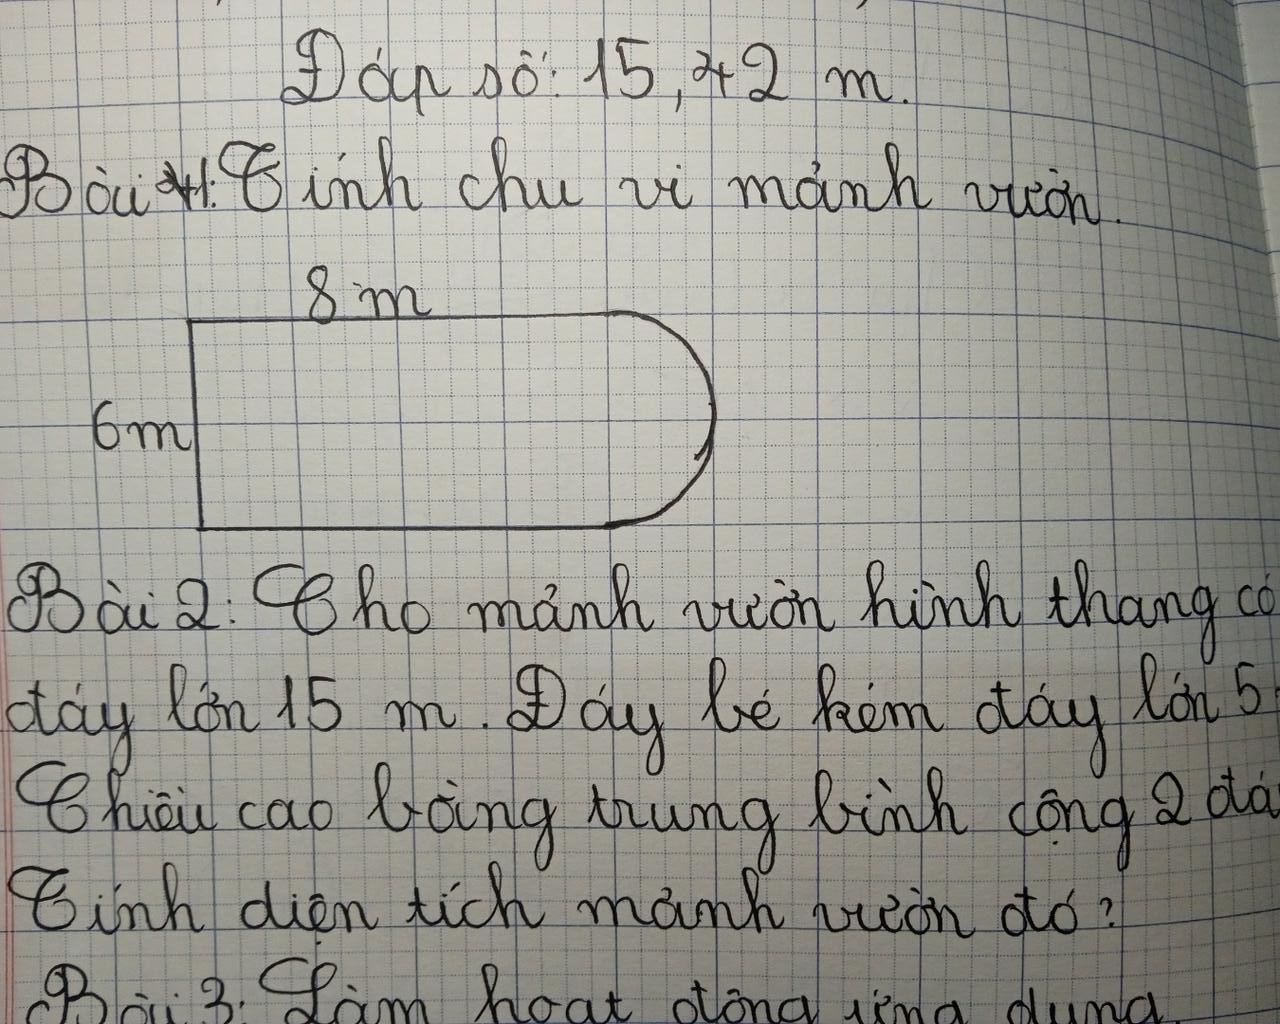 Đáp số: 15,42 m.
Bài 1: Tính chu vi mảnh vườn.
8 m
6m
Bài 2: Cho mảnh vườn hình thang có
đáy lớn 15 m. Đáy bé kém đáy lớn 5
Chiều cao bằng trung bình cộng 2 đá
Tính diện tích mảnh vườn đó?
Bài 3: Làm hoạt động ứng dụng